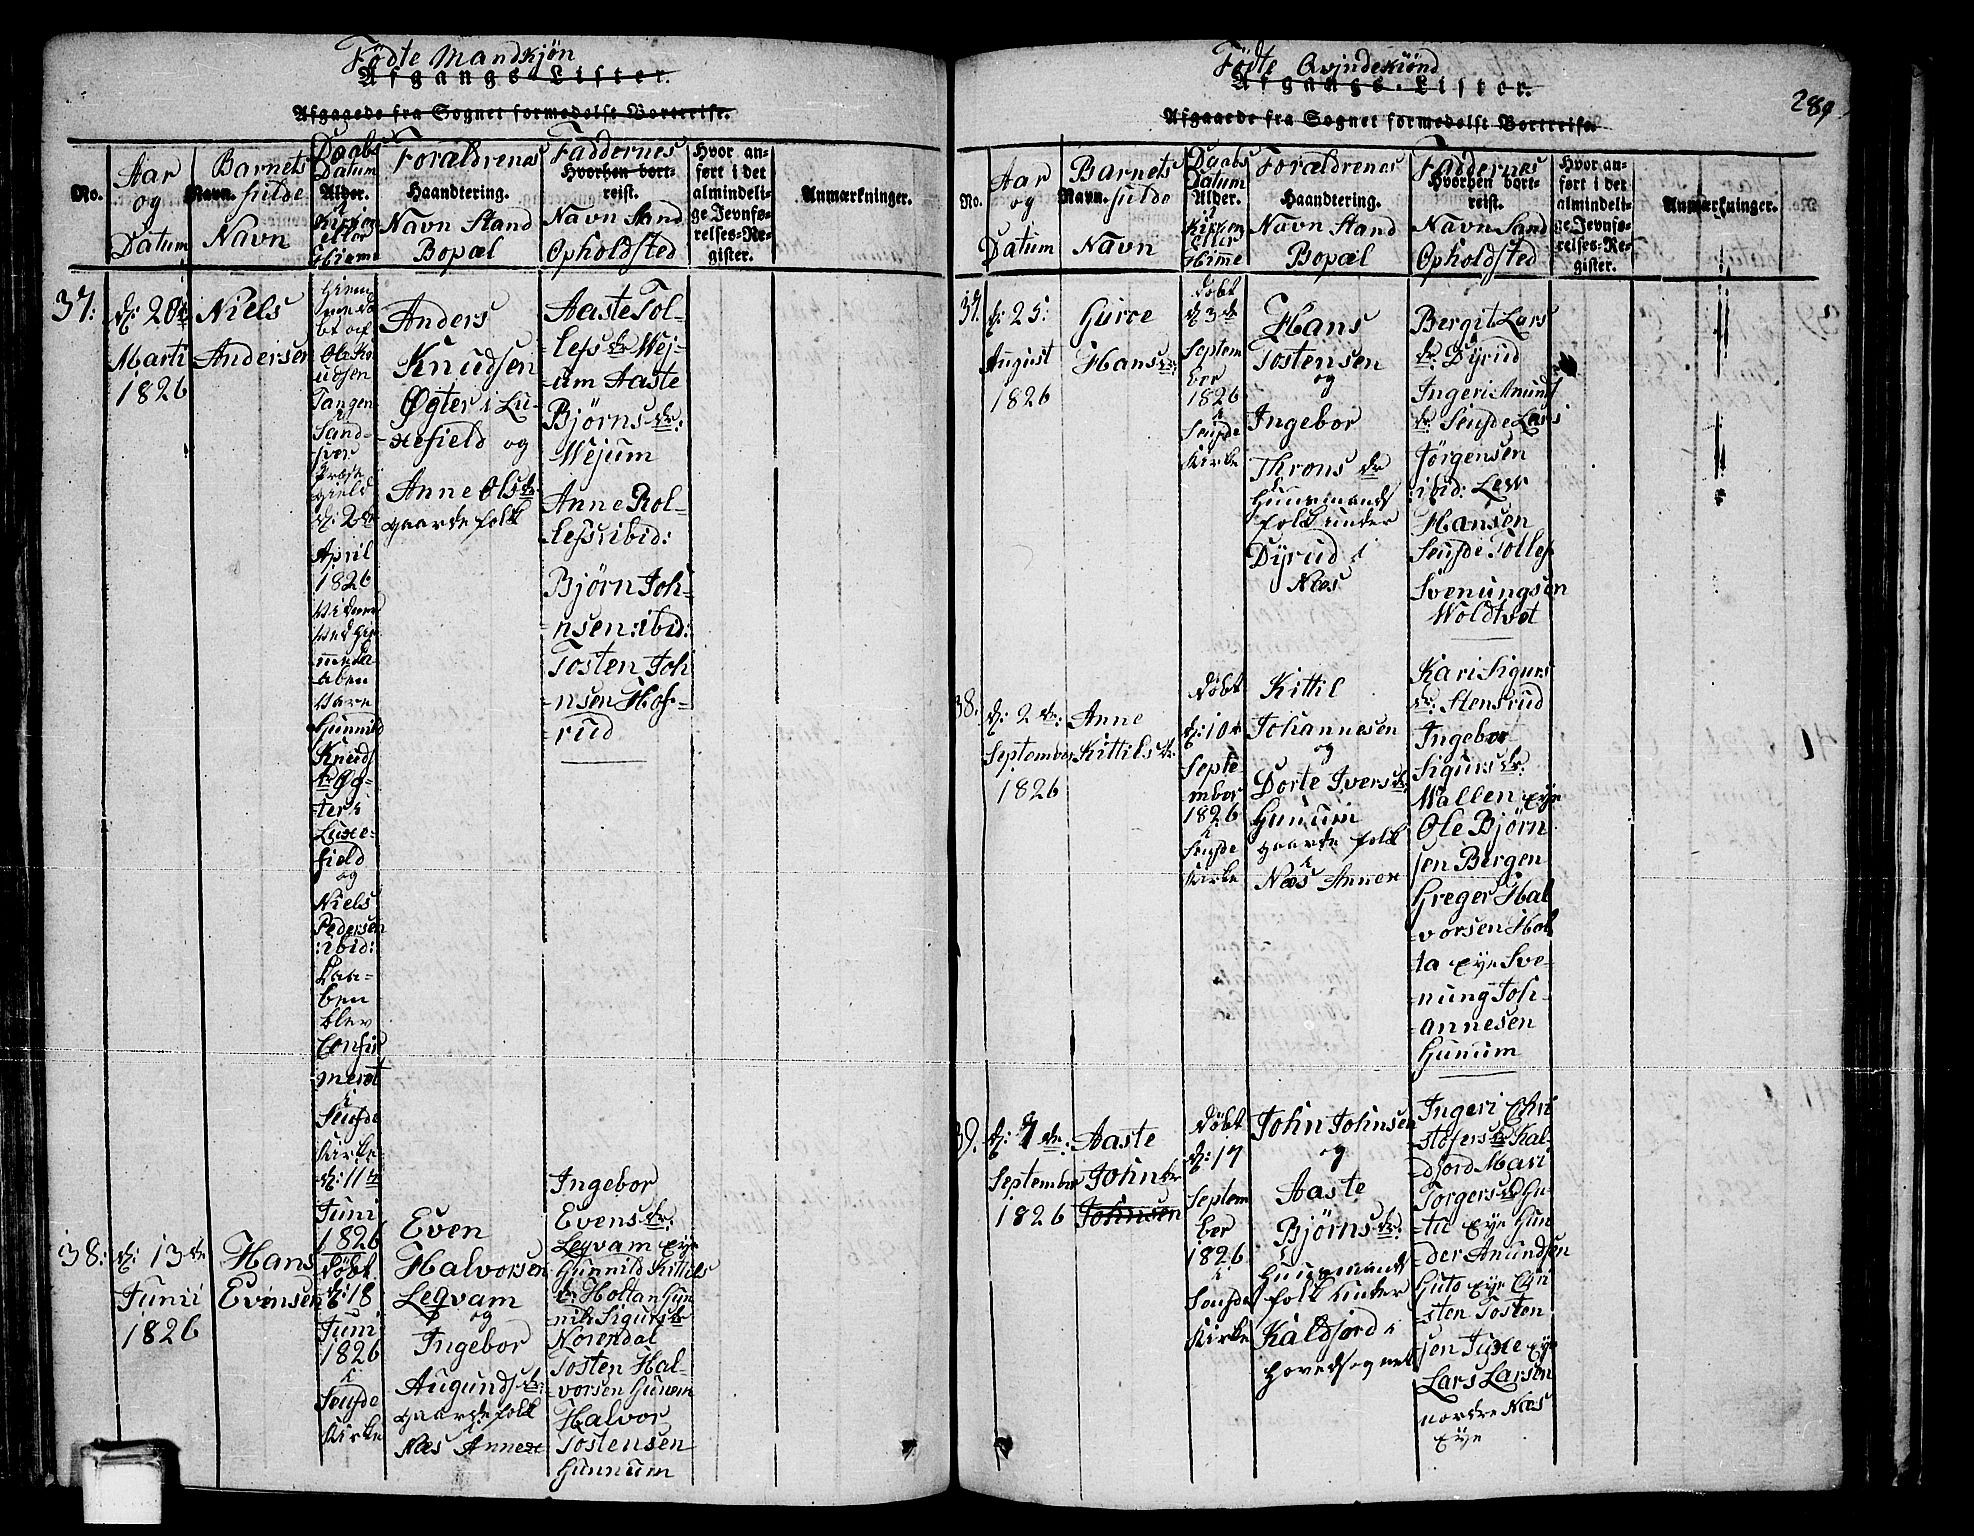 Fødte Mandkjøn
Afgangs-Lister.
Afgagede fra Sognet formedelst Bortreise.
No.
Aar
og
Datum
Barnets
Navn. fulde
Navn
Daabs
Datum
Alder.
i
Kirken
eller
Hieme
Forældrenes
Haandtering.
Navn Stand
Bopæl
Faddernes
Hvorhen bort-
reist.
Navn Stand
Opholdsted
Hvor an-
ført i det
almindeli-
ge Jevnfø-
relses-Re-
gister.
Anmærkninger.
37:
d: 28de
Marti
1826
Niels
Andersen
Ole Kn
udsen
Tangen
i
Sand-
svær
Præste
gield
d: 2de
April
1826
Vidner
ved Hie
mmeda
aben
vare
Gunnild
Knuds
dr Øg-
ter i
Luxe-
field
og
Niels
Pedersen
:ibid:
Daa-
ben
blev
Confir
meret
i
Kirke
d: 11te
Juni
1826
Anders
Knudsen
Øgter i Lu-
xefield og
Anne Olsdr
gaardefolk
Aaste Tol-
lefs dr Wej-
um Aaste
Bjørns dr:
Wejum
Anne Rol-
lefs: ibid:
Bjørn Joh-
nsen: ibid:
Tosten Joh
nsen Hof-
rud
38:
d: 13de
Junii
1826
Hans
Evensen
Døbt
d: 18
Juni
1826
i
Kirke
Even
Halvorsen
Leqvam
og
Ingebor
Augunds dr:
gaardefolk
i
Næs Annex
Ingebor
Evens dr:
Leqvam eye
Gunnild Kittils
dr Holtan Gun
nild Sigurs dr
Norendal
Tosten Hal-
vorsen Gunum
Halvor
Tostensen
Gunnum
Fødte Qvindekiønd
Afgangs-Lister.
Afgaaede fra Sognet formedelst Bortreise
289
No.
Aar
og
Datum
Barnets
Navn. fulde
Navn
Daabs
Datum
Alder.
i
Kirken
eller
Hime
Forældrenes
Haandtering.
Navn Stand
Bopæl
Faddernes
Hvorhen bort-
reist.
Navn Stand
Opholdsted
Hvor an-
ført i det
almindeli-
ge Jevnfø-
relses-Re-
gister.
Anmærkninger.
37.
d: 25:
August
1826
Guroe
Hansdr:
Døbt
d: 3de
Septem
ber
1826
i
Kirke
Hans
Tostensen
og
Ingebor
Throns dr
Huusmands
folk under
Dyrud i
Næs
Bergit Lars
dr. Dyrud
Ingeri Anund
dr. Lars
Jørgensen
:ibid:
Hansen
Tollef
Svenungsen
Woldtvet
38.
d: 2den:
September
1826
Anne
Kittilsdr
Døbt
d: 10de
Septe
mber
1826
i
Kirke
Kittil
Johannesen
og
Dorte Ivers dr.
Gunum
gaarde folk
i
Næs Annex
Kari Sigurs
dr: Stensrud
Ingebor
Sigurs dr:
Wallen eye
Ole Bjørn
sen Bergen
Greger Hal
vorsen Hol
ta eye Sve-
nung Joh-
annesen
Gunum
39.
d: 7de:
September
1826
Aaste
Johndr
Johnsen
Døbt
d: 17
Septem
ber
1826
i
Kirke
John Johnsen
og
Aaste
Bjørns dr:
Huusmands
folk under
Kaldjord i
hovedsognet
Ingeri Chri
stofers dr Kal-
djord Mari
Torgers dr
eye Gun
der Anundsen
eye
sten Tosten
sen eye
Lars Larsen
nordre Næs
eye